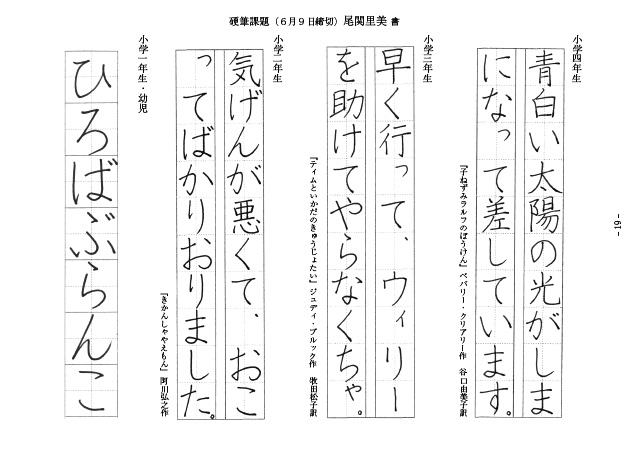 硬筆課題（６月９日締切）尾関里美 書
小学四年生
青白い太陽の光がしま
になって差しています。
『子ねずみラルフのぼうけん』ベバリー・クリアリー作　谷口由美子訳
小学三年生
早く行って、ウィリー
を助けてやらなくちゃ。
『ティムといかだのきゅうじょたい』ジュディ・ブルック作　牧田松子訳
小学二年生
気げんが悪くて、おこ
ってばかりおりました。
『きかんしゃやえもん』阿川弘之作
小学一年生・幼児
ひろばぶらんこ
- 19 -